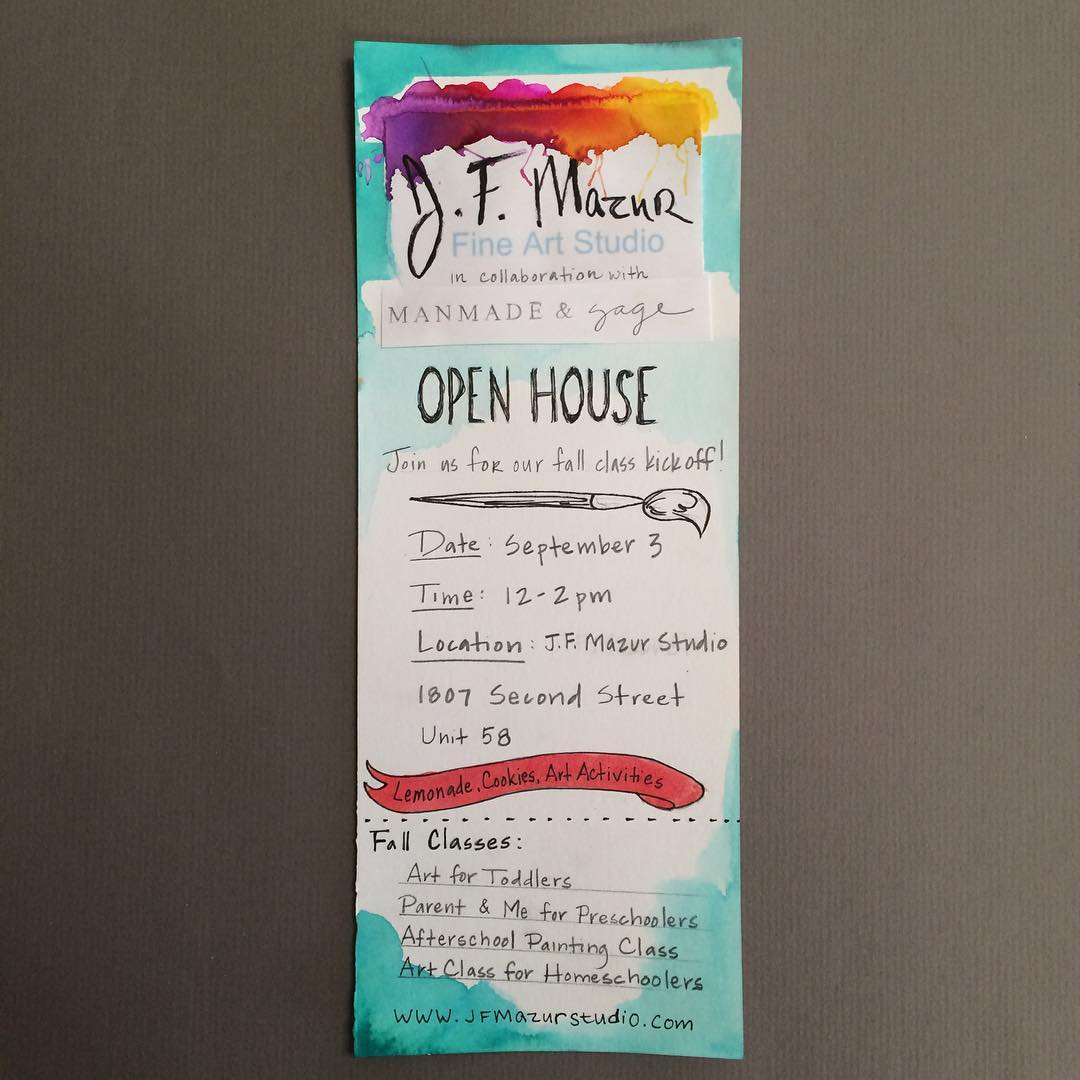 J. F. Mazur
Fine Art Studio
in collaboration with
MANMADE & sage
OPEN HOUSE
Join us for our fall class kick off!
Date: September 3
Time: 12-2pm
Location: J.F. Mazur Studio
1807 Second Street
Unit 58
Lemonade, Cookies, Art Activities
Fall Classes:
Art for Toddlers
Parent & Me for Preschoolers
Afterschool Painting Class
Art Class for Homeschoolers
www.JFMazurstudio.com